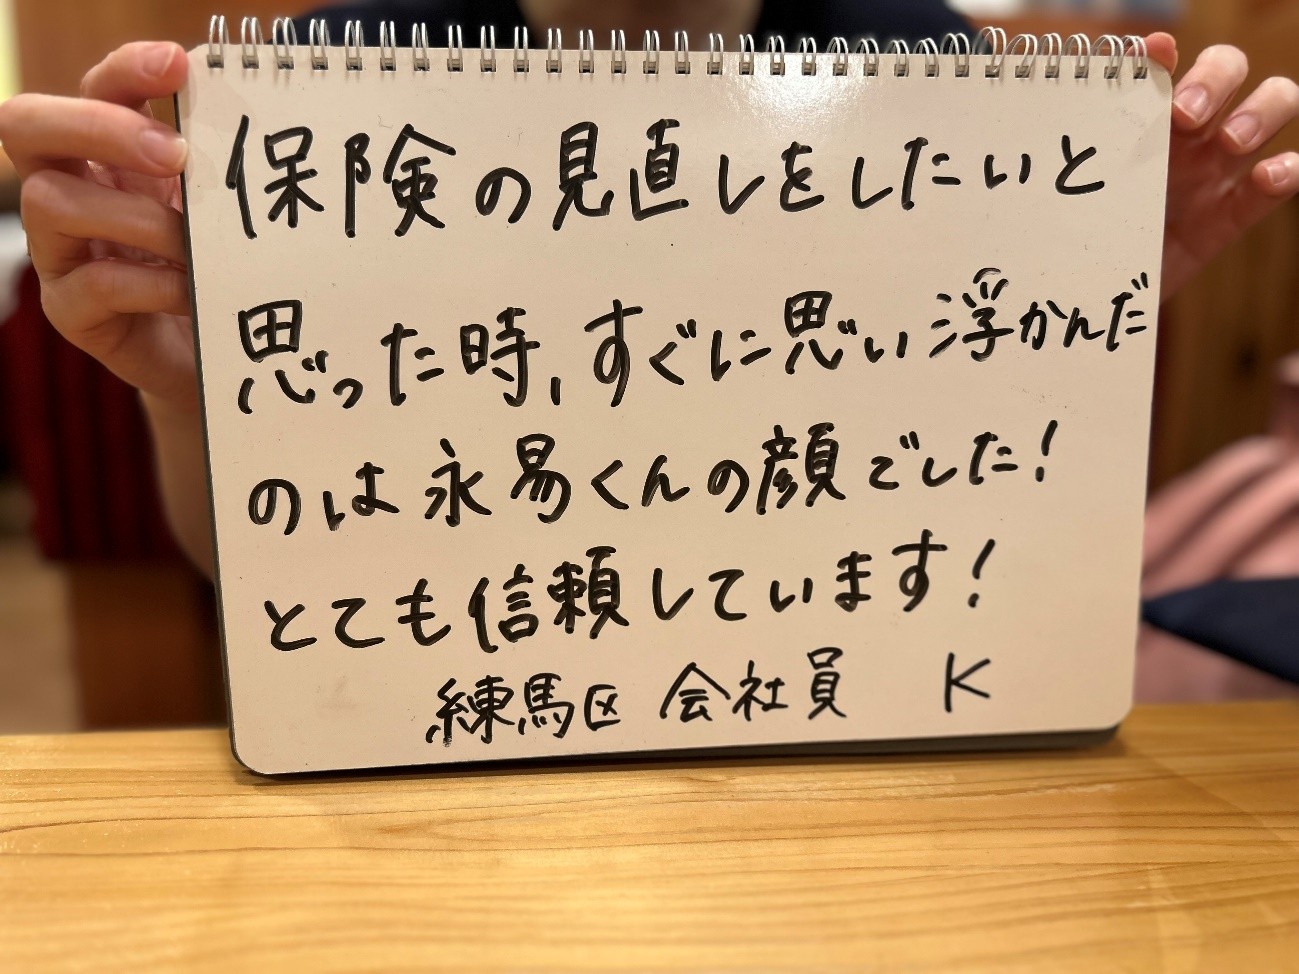 保険の見直しをしたいと
思った時、すぐに思い浮かんだ
のは永易くんの顔でした！
とても信頼しています！
練馬区 会社員 K